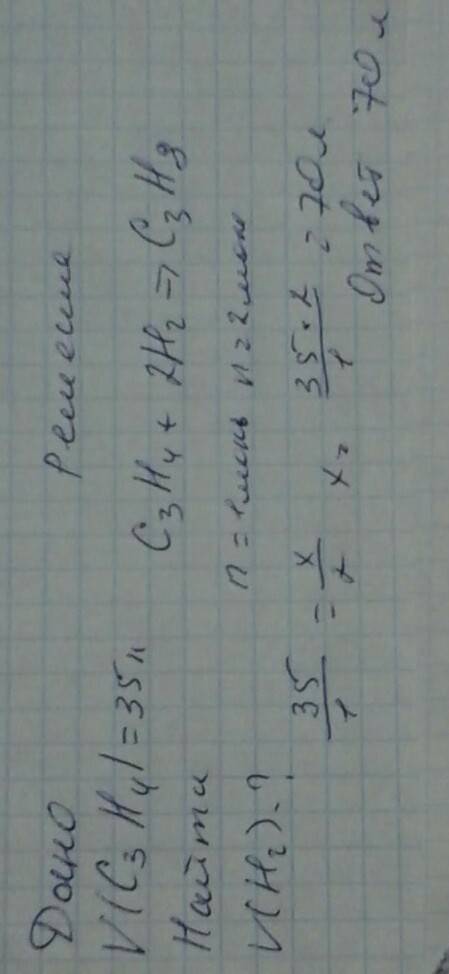 Дано
V(C3H4)=35л
Найти
V(H2)-?
Решение
C3H4 + 2H2 => C3H8
n=1моль n=2моль
35/1 = x/2 x= 35·2/1 = 70л
Ответ 70 л